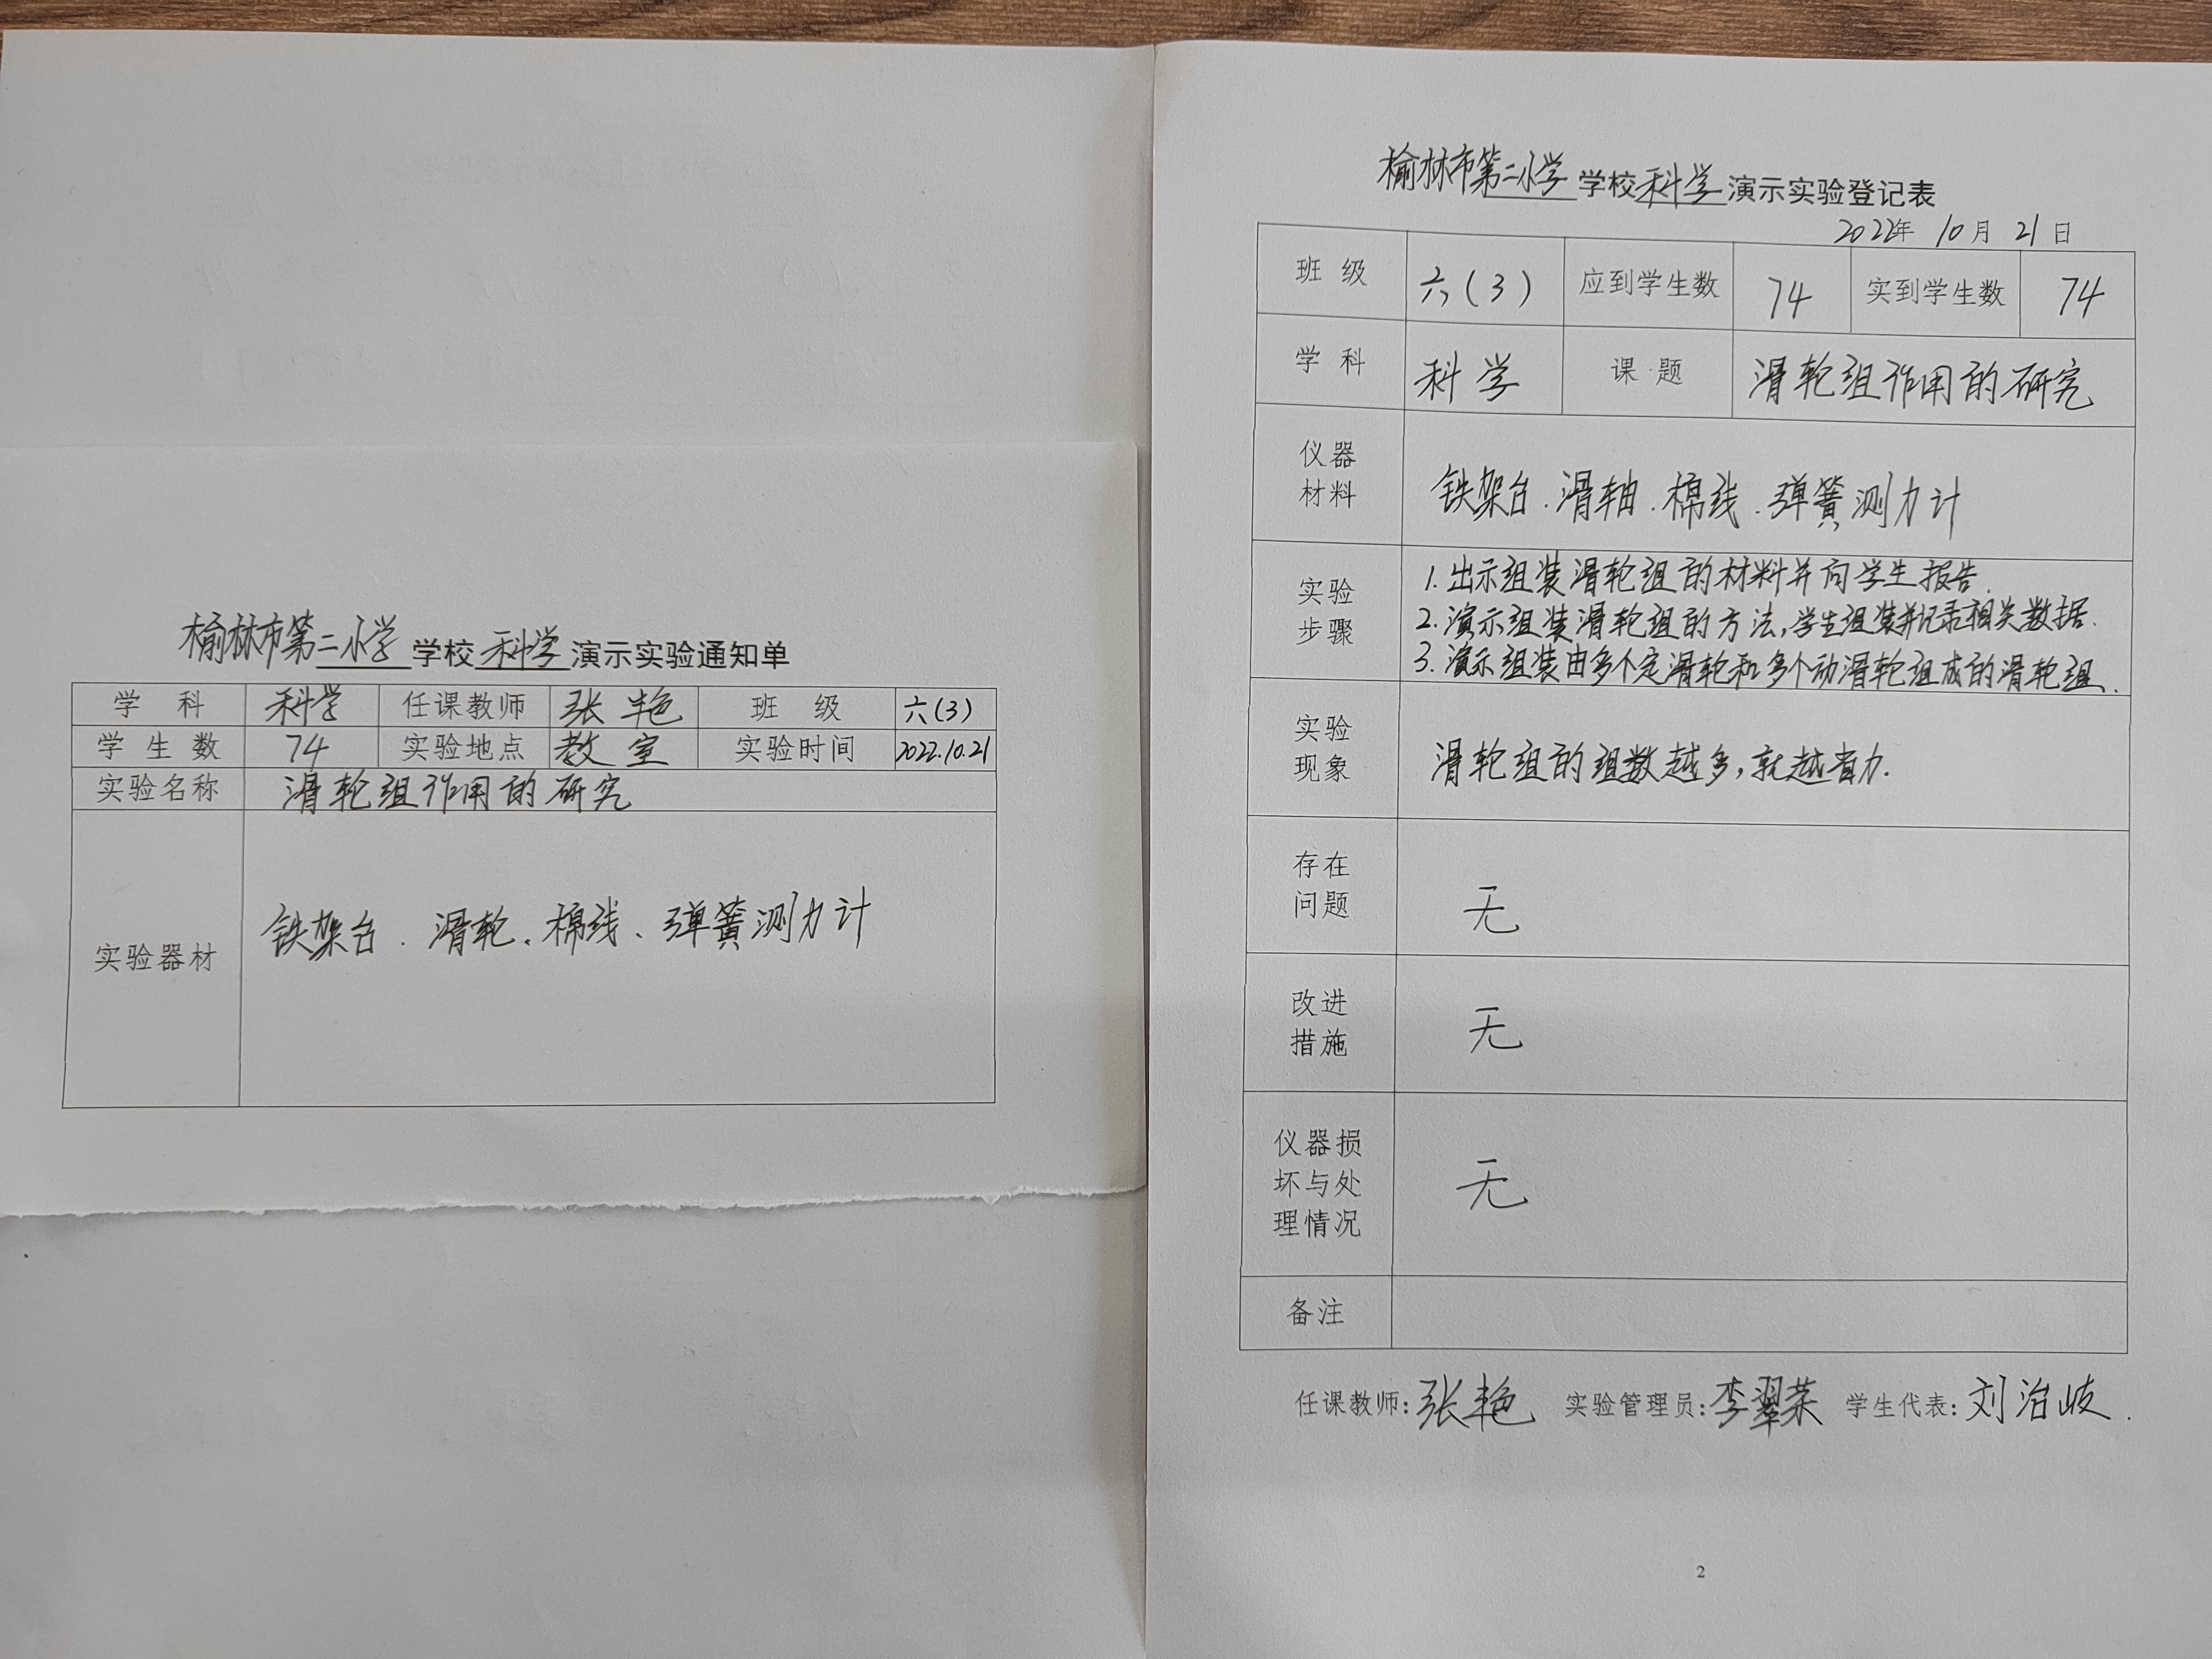 榆林市第二小学学校科学演示实验通知单
学 科 科学 任课教师 张艳 班 级 六(3)
学生数 74 实验地点 教室 实验时间 2022.10.21
实验名称 滑轮组作用的研究
实验器材 铁架台、滑轮、棉线、弹簧测力计
榆林市第二小学学校科学演示实验登记表
2022年 10月 21日
班 级 六(3) 应到学生数 74 实到学生数 74
学 科 科学 课 题 滑轮组作用的研究
仪器
材料
铁架台.滑轴.棉线.弹簧测力计
实验
步骤
1.出示组装滑轮组的材料并向学生报告.
2.演示组装滑轮组的方法,学生组装并记录相关数据.
3.演示组装由多个定滑轮和多个动滑轮组成的滑轮组.
实验
现象
滑轮组的组数越多,就越省力.
存在
问题
无
改进
措施
无
仪器损
坏与处
理情况
无
备注
任课教师:张艳 实验管理员:李翠荣 学生代表:刘治岐.
2